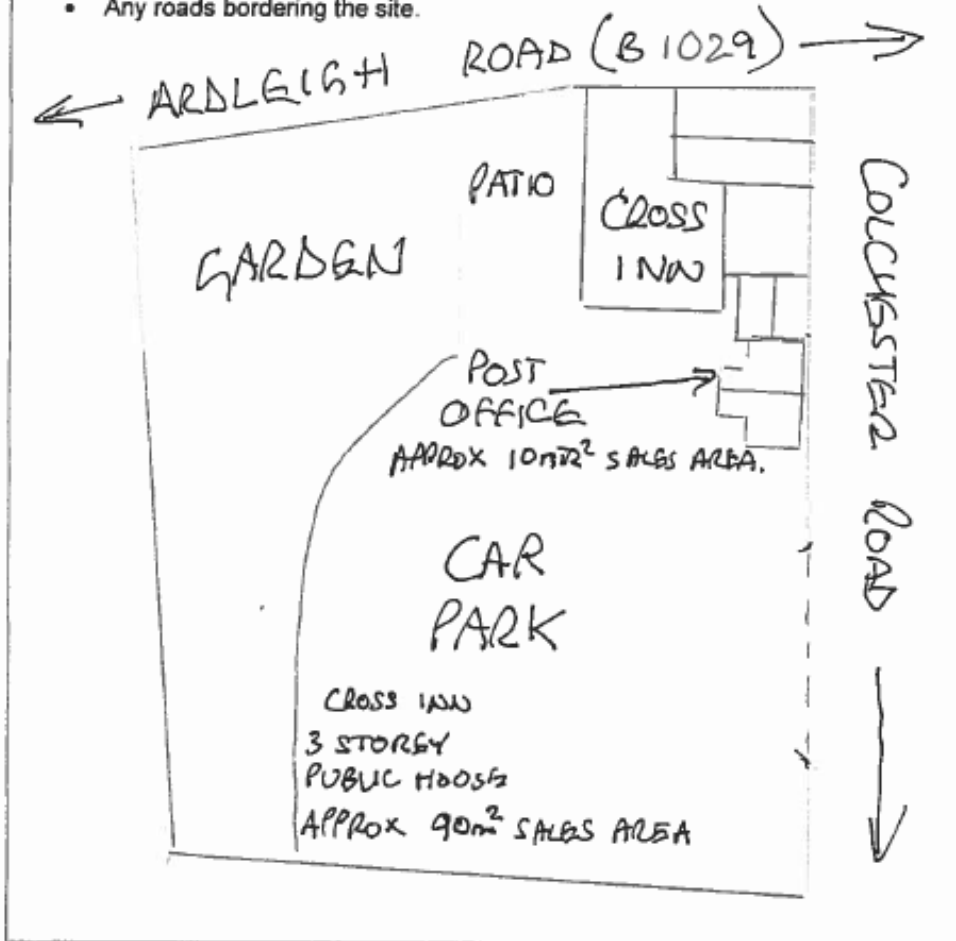 • Any roads bordering the site.
ARDLEIGH ROAD (B1029)
PATIO
CROSS
INN
GARDEN
POST
OFFICE
APPROX 10m² SALES AREA.
CAR
PARK
CROSS INN
3 STOREY
PUBLIC HOUSE
APPROX 90m² SALES AREA
COLCHESTER ROAD